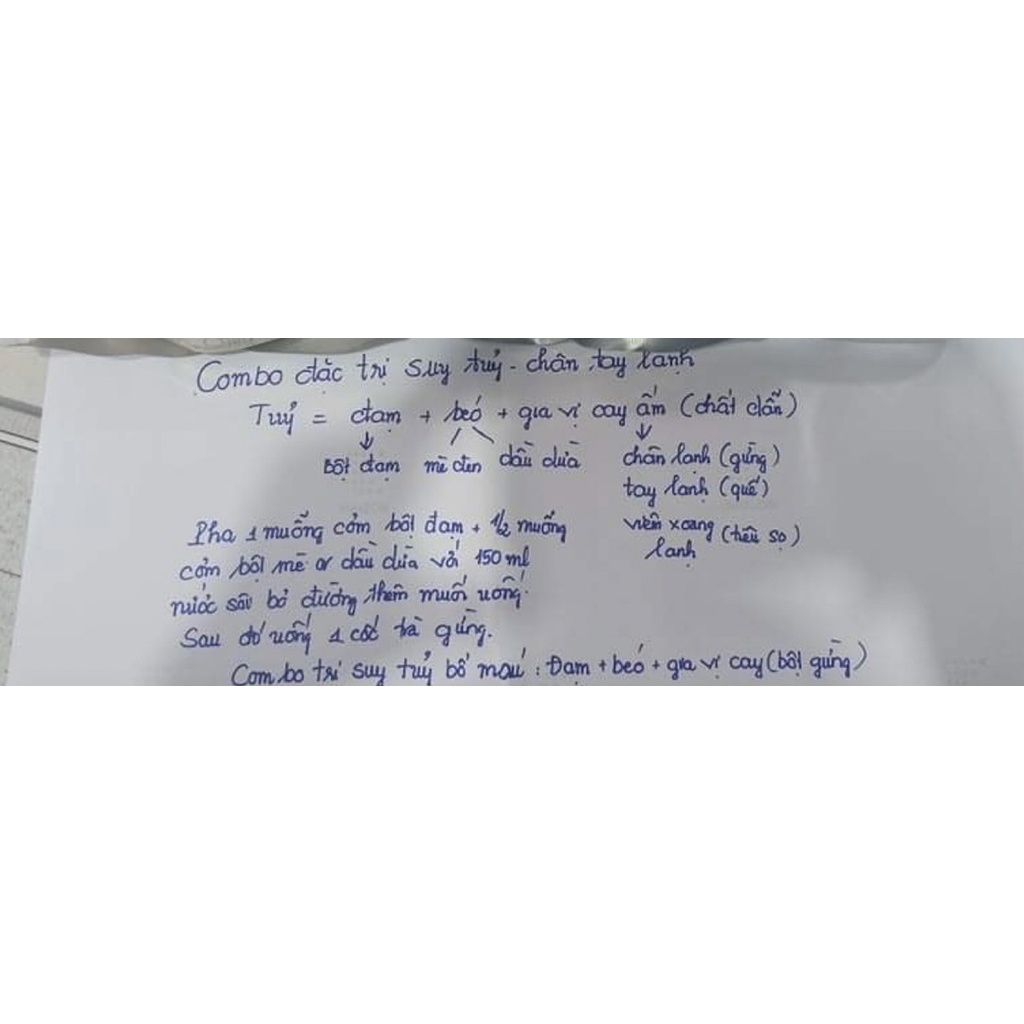 Combo đặc trị suy tuỷ - chân tay lạnh
Tuỷ = đạm + béo + gia vị cay ấm (chất dẫn)
Bột đạm mè đen dầu dừa chân lạnh (gừng)
tay lạnh (quế)
Pha 1 muỗng cơm bột đạm + 1/2 muỗng viêm xoang (tiêu sọ)
cơm bột mè or dầu dừa với 150 ml lạnh
nước sôi bỏ đường thêm muối uống.
Sau đó uống 1 cốc trà gừng.
Combo trị suy tuỷ bổ máu : Đạm + béo + gia vị cay (bột gừng)